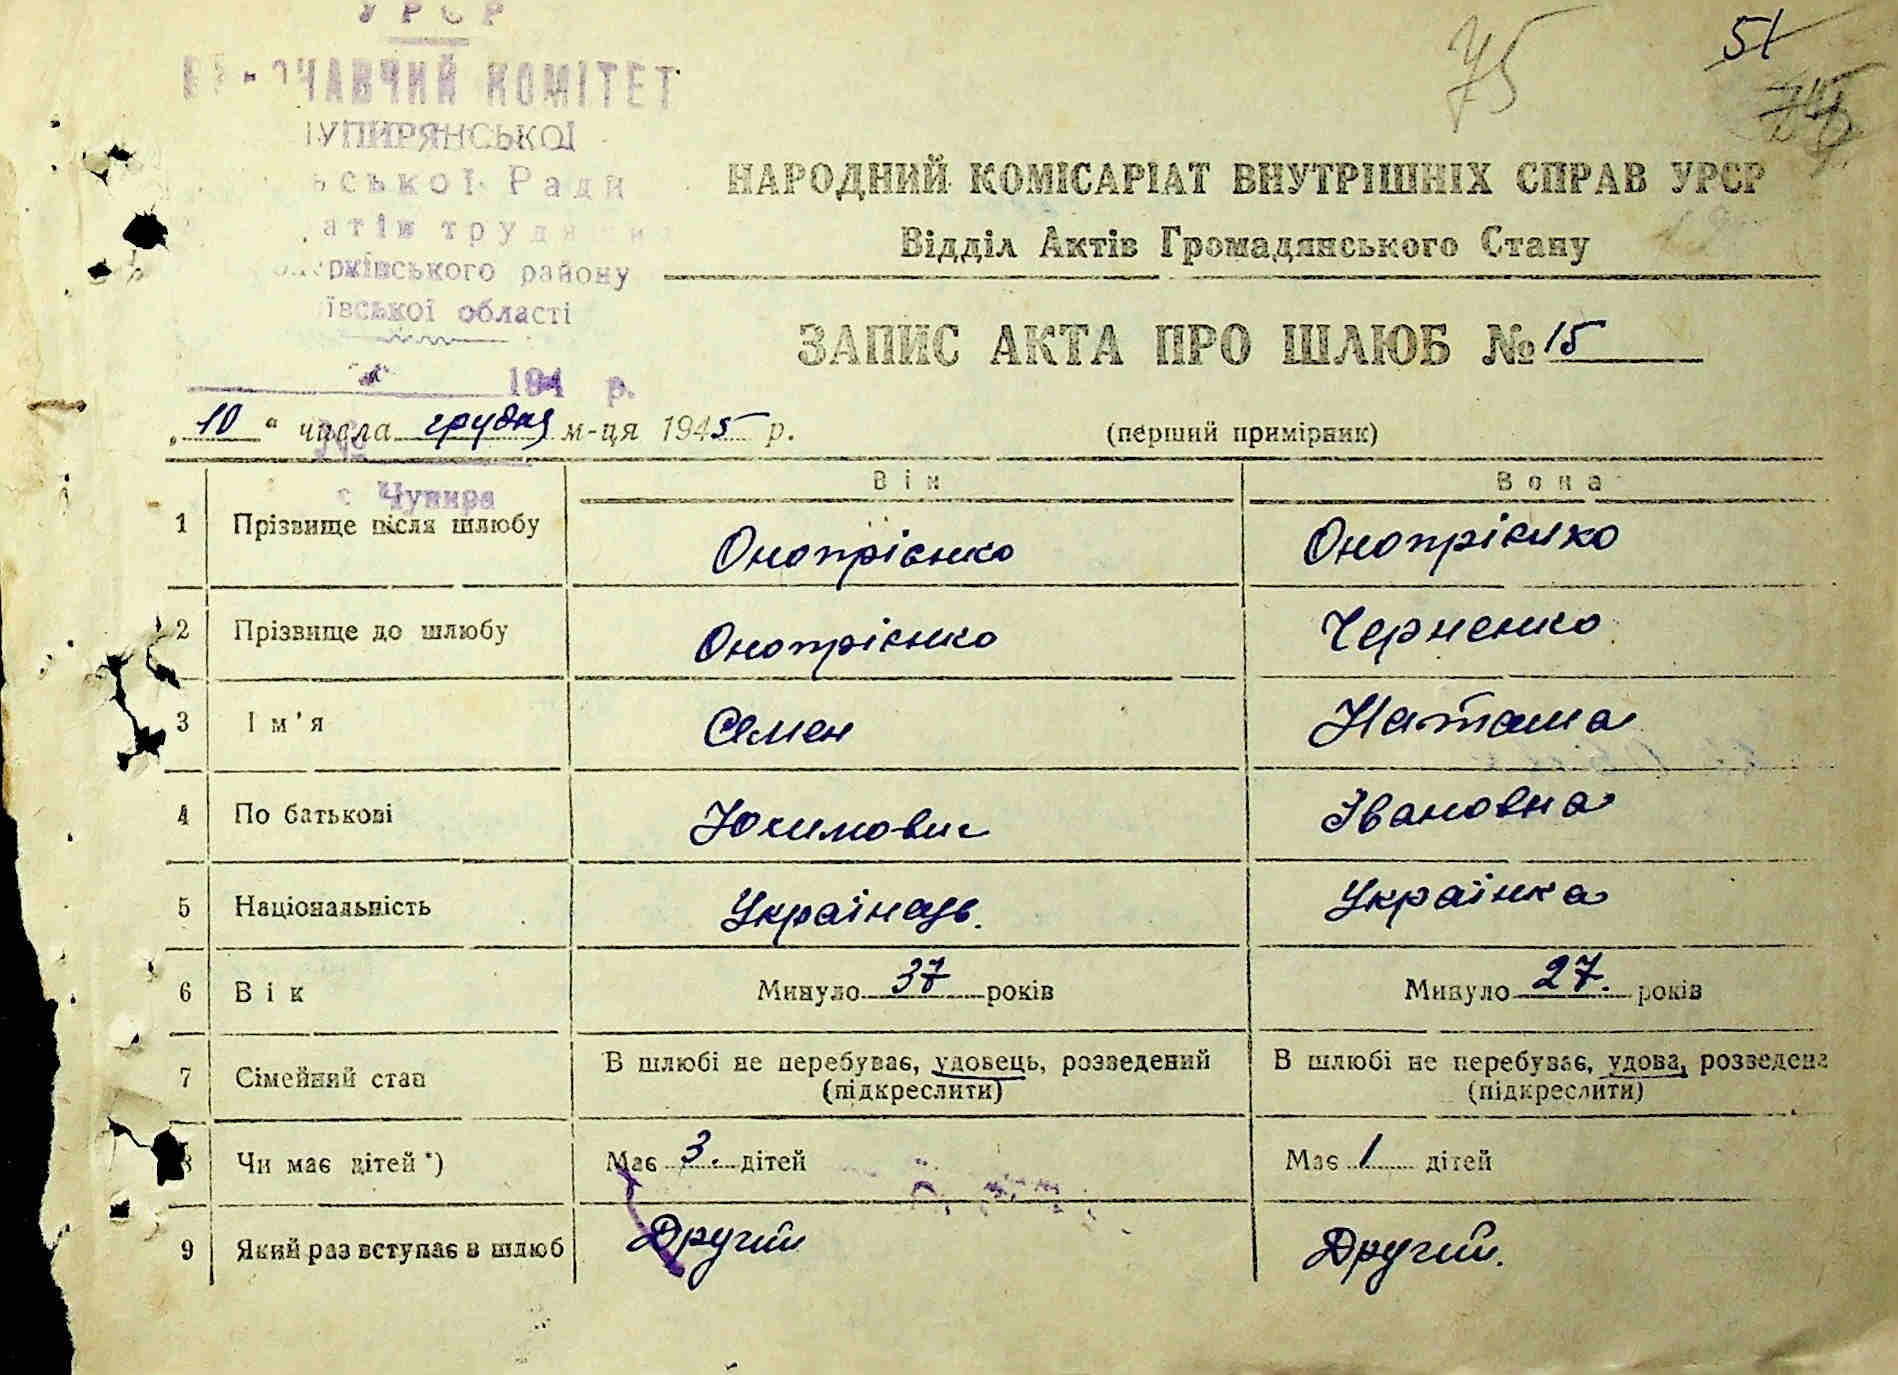 УРСР
КОМІТЕТ
Ради
району
області
194 р.
№
с Чупира
75
51
НАРОДНИЙ КОМІСАРІАТ ВНУТРІШНІХ СПРАВ УРСР
Відділ Актів Громадянського Стану
ЗАПИС АКТА ПРО ШЛЮБ № 15
„10" числа грудня м-ця 1945 р.
(перший примірник)
Він Вона
1 Прізвище після шлюбу Онопрієнко Онопрієнко
2 Прізвище до шлюбу Онопрієнко Черненко
3 Ім'я Семен Наташа
4 По батькові Юхимович Івановна
5 Національність Українець. Українка
6 Вік Минуло 37 років Минуло 27. років
7 Сімейний стан В шлюбі не перебуває, удовець, розведений В шлюбі не перебуває, удова, розведена
(підкреслити) (підкреслити)
8 Чи має дітей *) Має 3. дітей Має 1 дітей
9 Який раз вступає в шлюб Другий Другий.